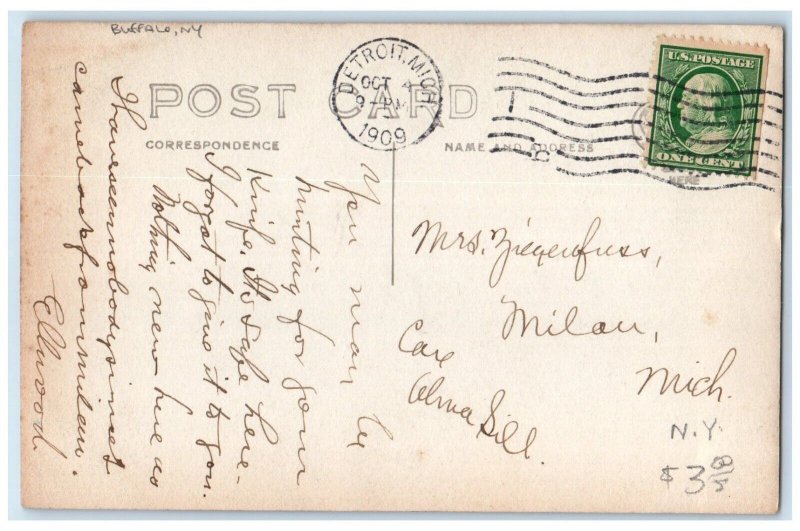 BUFFALO, NY
POST CARD
CORRESPONDENCE
NAME AND ADDRESS
DETROIT, MICH.
OCT 4
9 - PM
1909
U.S. POSTAGE
ONE CENT
HERE
You may be
hunting for your
Knife. It's safe here -
I forgot to give it to you.
Nothing new here as
I have seen nobody since I
came back from Milan.
Ellwood.
Mrs. Ziegenfuss,
Milan,
Mich.
Care
Alma Sill.
N.Y.
$3